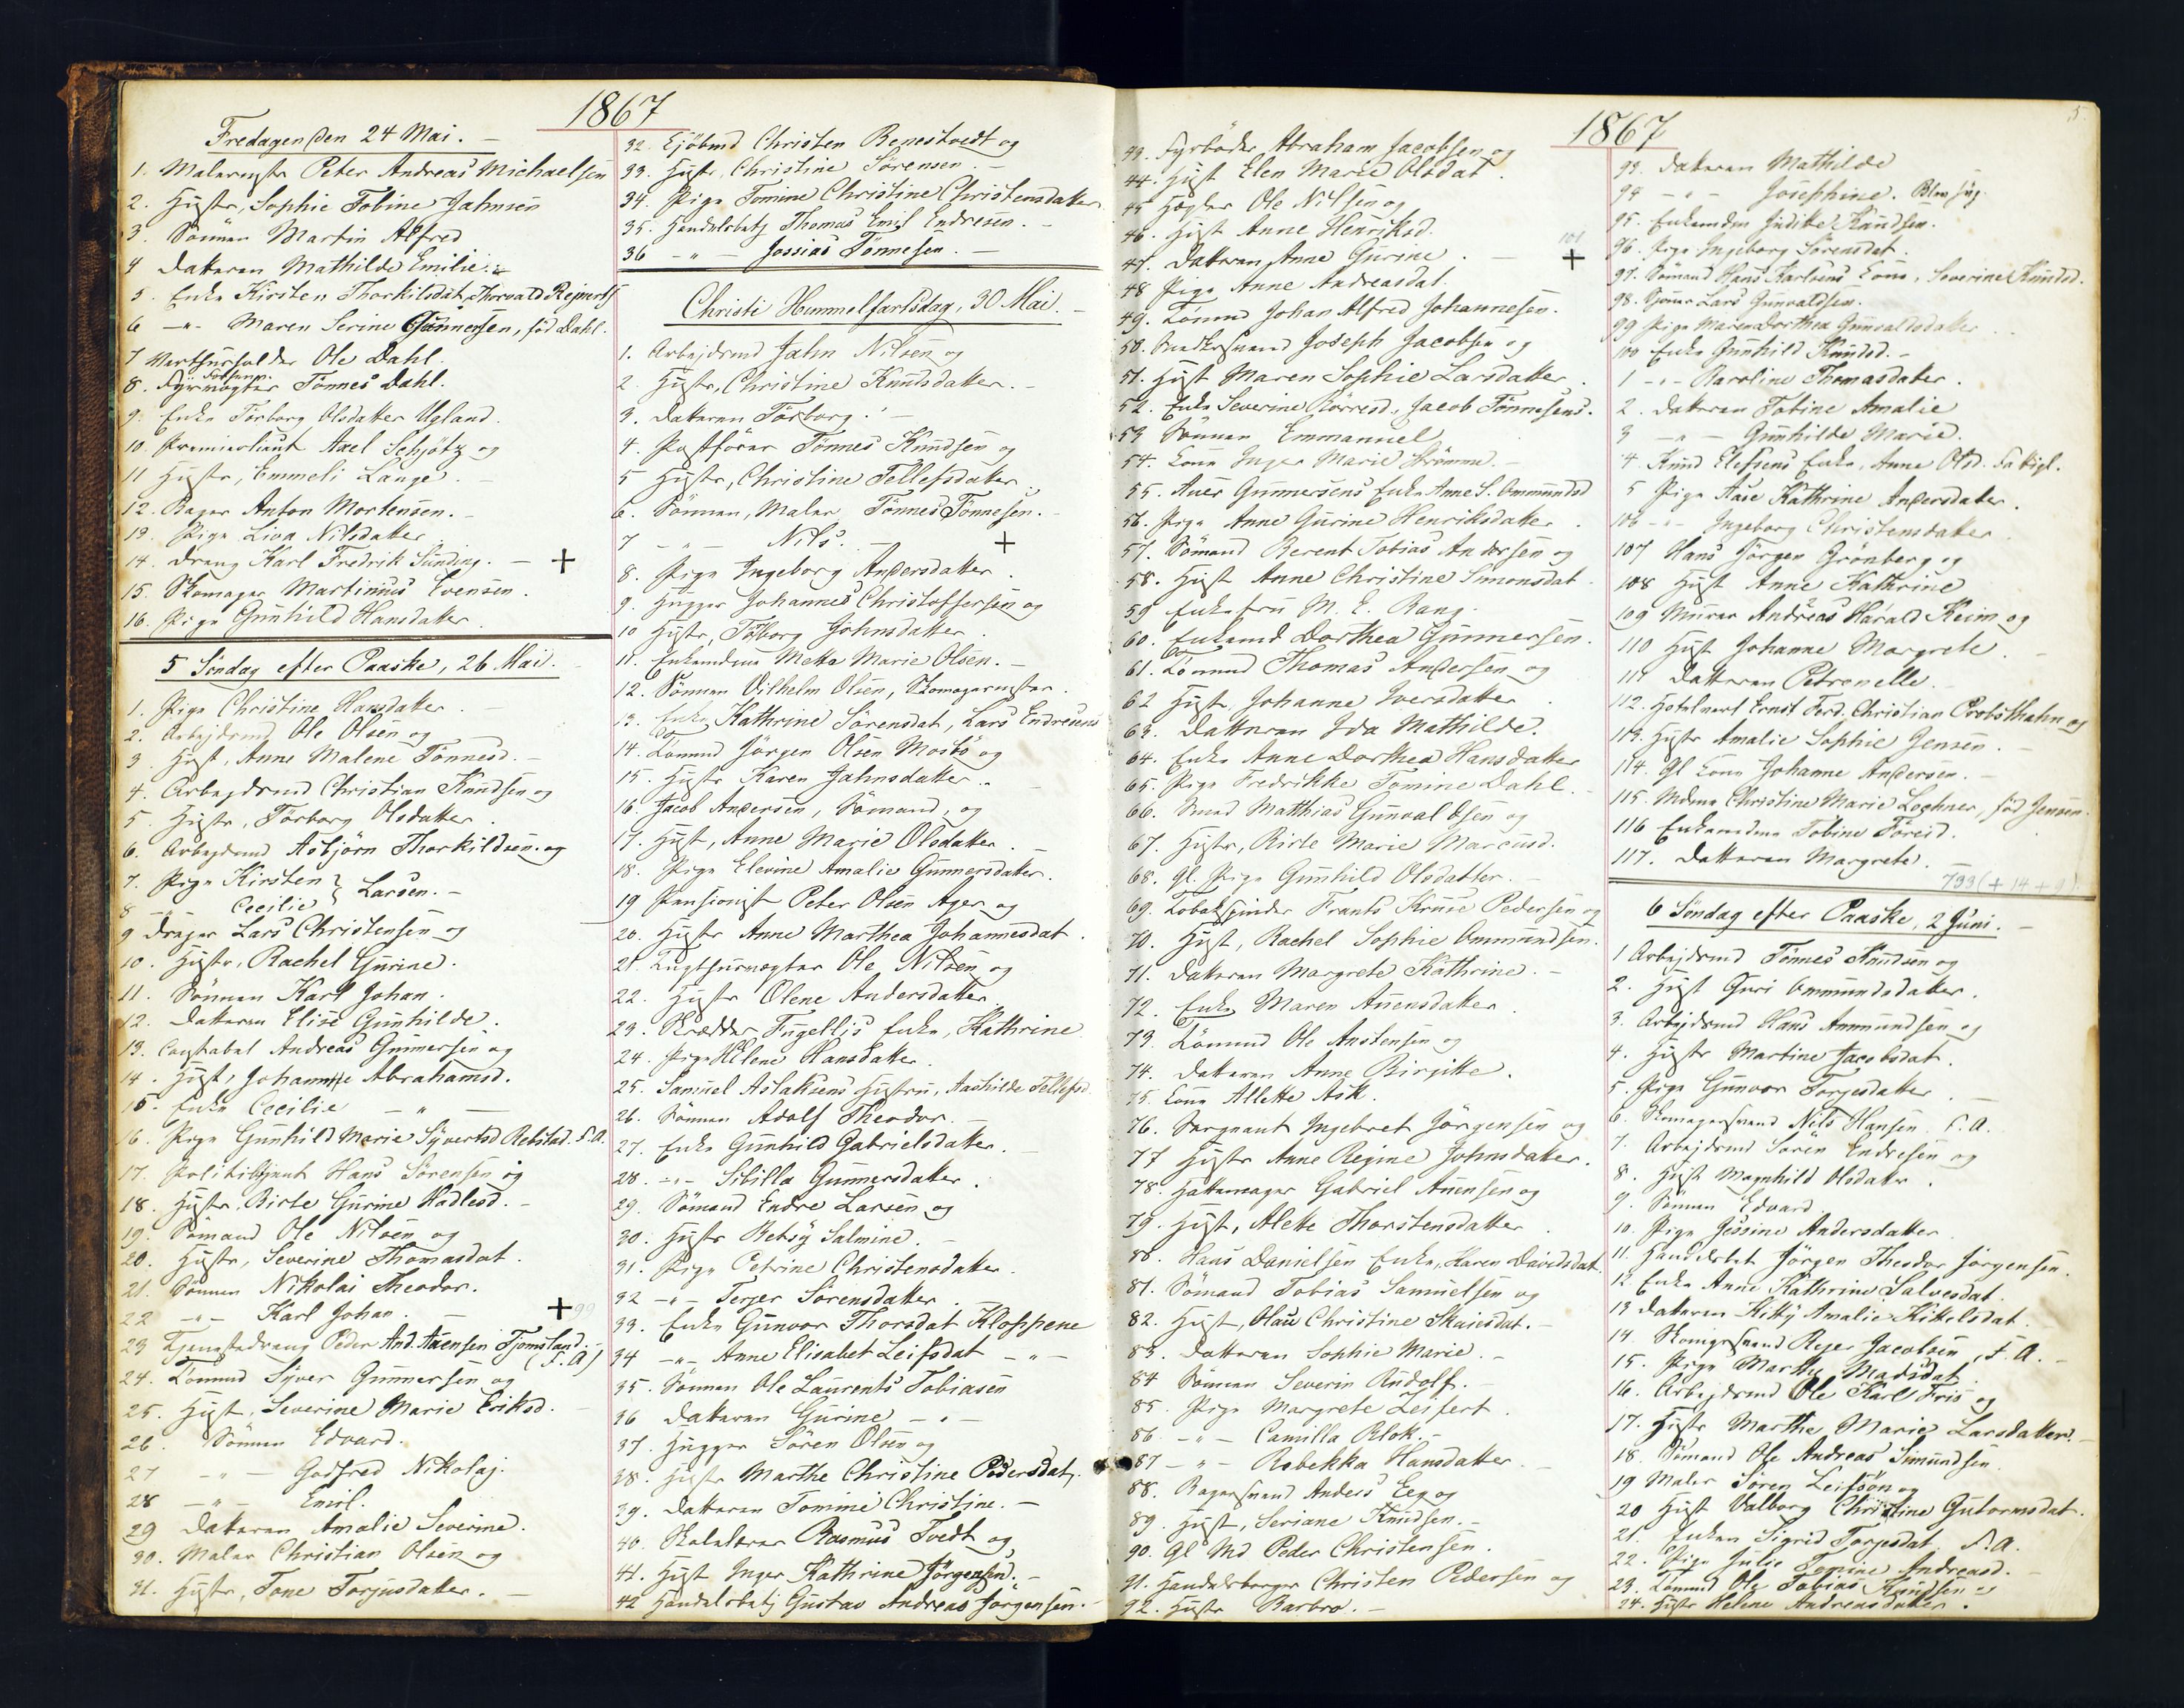 1867
Fredagen den 24 Mai. -
1. Malermstr Peter Andreas Michaelsen
2. Hustr, Sophie Tobine Jahnsen
3. Sønnen Martin Alfred
4 Datteren Mathilde Emilie.
5. Enke Kirsten Thorkilsdat, Thorvald Reinerts
6 -"- Maren Serine Gunnersen, fød Dahl.
7 Ole Dahl.
8. Fyrvogter Tønnes Dahl.
9. Enke Torborg Olsdatter Ugland.
10. Premierlieut Axel Schjøtz og
11 Hustr, Emmeli Lange. -
12. Bager Anton Mortensen. -
13. Pige Liva Nilsdatter
14. Dreng Karl Fredrik Sunding. - +
15. Skomager Martinius Evensen.
16. Pige Gunhild Hansdatter.
5 Søndag efter Paaske, 26 Mai. -
1. Pige Christine Hansdatter. -
2. Arbejdsmd Ole Olsen og
3. Hust, Anne Malene Tønnesd. -
4. Arbejdsmd Christian Knudsen og
5. Hustr, Torborg Olsdatter.
6. Arbejdsmd Asbjørn Thorkildsen. og
7. Pige Kirsten } Larsen. -
8 -"- Cecilie
9 Drager Lars Christensen og
10. Hustr, Rachel Gurine.
11. Sønnen Karl Johan.
12. Datteren Elise Gunhilde.
13. Constabel Andreas Gunnersen og
14. Hust, Johanne Abrahamsd.
15. Enke Cecilie -"-
16. Pige Gunhild Marie Syvertsd Rebstad. F.A.
17. Politibtjent Hans Sørensen og
18. Hustr, Birte Gurine Hadlesd. -
19. Sømand Ole Nilsen og
20. Hustr, Severine Thomasdat.
21. Sønnen Nikolai Theodor.
22 -"- Karl Johan. - + 99
23 Tjenestedreng Peder And. Auensen Tjomsland. (F.A)
24. Lømmd Syver Gunnersen og
25. Hust, Severine Marie Eriksd. -
26. Sønnen Edvard.
27 -"- Godfred Nikolaj.
28 -"- Emil.
29 Datteren Amalie Severine.
30. Maler Christian Olsen og
31. Hustr, Tone Torjusdatter. -
32. Ejøbmd Christen Repestvedt og
33. Hustr, Christine Sørensen -
34. Pige Tomine Christine Christensdatter
35. Handelsbetj Thomas Emil Endresen. -
36 -"- Jossias Tønnesen. -
Christi Himmelfartsdag, 30 Mai. -
1. Arbejdsmd Jahn Nilsen og
2. Hustr, Christine Knudsdatter. -
3. Datteren Torborg. -
4. Postfører Tønnes Knudsen og
5 Hustr, Christine Tellefsdatter
6. Sønnen, Maler Tønnes Tønnesen. -
7 -"- Nils. - +
8. Pige Ingeborg Andersdatter.
9. Hugger Johannes Christoffersen og
10 Hustr, Torborg Johnsdatter.
11. Enkemdme Mette Marie Olsen. -
12. Sønnen Vilhelm Olsen, Skomagermester.
13. Enke Kathrine Sørensdat, Lars Endresens
14. Lømmd Jørgen Olsen Mosbø og
15. Hustr Karen Jahnsdatter.
16. Jacob Andersen, Sømand, og
17. Hust, Anne Marie Olsdatter. -
18. Pige Elevine Amalie Gunnersdatter.
19 Pensionist Peter Olsen Ager og
20. Hustr Anne Marthea Johannesdat.
21. Tugthusvogter Ole Nilsen og
22. Hustr Olene Andersdatter.
23. Skrædder Fugellis Enke, Kathrine
24. Pige Helene Hansdatter
25. Samuel Aslaksens Hustru, Aashilde Tellefsd
26. Sønnen Adolf Theodor. -
27. Enke Gunhild Gabrielsdatter. -
28. -"- Sibilla Gunnersdatter.
29. Sømand Endre Larsen og
30. Hustr Betsy Salmine. -
31. Pige Petrine Christensdatter.
32 -"- Terjer Sørensdatter -
33. Enke Gunvor Thorsdat Kloppene
34 -"- Anne Elisabet Leifsdat -"-
35. Sønnen Ole Laurents Tobiasen
36 Datteren Gurine -"-
37. Hugger Søren Olsen og
38. Hustr Marthe Christine Pedersdat.
39. Datteren Tomine Christine. -
40. Skolelærer Rasmus Tvedt og
41. Hust Inger Kathrine Jørgensen. -
42 Handelsbetj Gustav Andreas Jørgensen. -
1867
5
43. Fyrbøder Abraham Jacobsen og
44. Hust Elen Marie Olsdat.
45 Ole Nilsen og
46. Hust Anne Henriksd.
47. Datteren Anne Gurine. - + 101
48 Pige Anne Andreasdat.
49. Lømmd Johan Alfred Johannesen.
50. Snedkersvend Joseph Jacobsen og
51. Hust Maren Sophie Larsdatter.
52. Enke Severine Børresd, Jacob Tønnesens.
53 Sønnen Emmanuel
54. Kone Inger Marie Strømme. -
55. Auer Gunnersens Enke Anne S. Ommundsd
56. Pige Anne Gurine Henriksdatter
57. Sømand Berent Tobias Andersen og
58. Hust Anne Christine Simonsdat
59 Enkefru M. E. Bang.
60. Enkemd Dorthea Gunnersen.
61. Lømmd Thomas Andersen og
62 Hust, Johanne Iversdatter
63. Datteren Ida Mathilde.
64. Enke Anne Dorthea Hansdatter
65. Pige Fredrikke Tomine Dahl. -
66. Smed Matthias Gunvaldsen og
67. Hustr, Birte Marie Marcusd.
68. Gl. Pige Gunhild Olsdatter. -
69. Tobakspinder Frants Kruse Pedersen og
70. Hust, Rachel Sophie Ommundsen.
71. Datteren Margrete Kathrine. -
72. Enke Maren Auensdatter
73. Lømmd Ole Austensen og
74. Datteren Anne Birgitte.
75. Kone Allette Ask.
76. Sergeant Ingebret Jørgensen og
77 Hustr Anne Regine Johnsdatter.
78. Hattemager Gabriel Auensen og
79. Hust, Alette Thorstensdatter
80. Hans Danielsen Enke, Karen Davidsdat.
81. Sømand Tobias Samuelsen og
82. Hust, Olau Christine Skaiesdat. -
83. Datteren Sophie Marie. -
84 Sønnen Severin Rudolf. -
85. Pige Margrete Zeifert.
86 -"- Camilla Blok. -
87 -"- Rebekka Hansdatter. -
88. Bagersvend Anders Eeg og
89. Hust, Seriane Knudsen. -
90. Gl Md Peder Christensen.
91. Handelsborger Christen Pedersen og
92. Hustr Barbro. -
93. Datteren Mathilde
94 -"- Josephine. Blev syg.
95. Enkemdm Judithe Knudsen.
96. Pige Ingeborg Sørensdat.
97. Sømand Hans Karlsens Kone, Severine Knudsd.
98. Lars Gunvaldsen.
99 Pige Maren Dorthea Gunvaldsdatter
100 Enke Gunhild Knudsd. -
1 -"- Karoline Thomasdatter.
2. Datteren Tobine Amalie
3 -"- Gunhilde Marie.
4. Knud Elefsens Enke, Anne Olsd. Fattigl.
5 Pige Aase Kathrine Andersdatter.
106 -"- Ingeborg Christensdatter.
107 Hans Jørgen Grønberg og
108 Hust Anne Kathrine
109 Murer Andreas Harald Keim og
110 Hust Johanne Margrete. -
111 Datteren Petronelle. -
112. Hotelvert Ernst Ferd. Christian Probsthahn og
113. Hustr Amalie Sophie Jensen. -
114. Gl Kone Johanne Andersen. -
115. Mdme Christine Marie Lochner, fød Jensen.
116 Enkemdme Tobine Toresd.
117. Datteren Margrete. -
799 (+ 14 + 9).
6 Søndag efter Paaske, 2 Juni. -
1 Arbejdsmd Tønnes Knudsen og
2. Hust Guri Ommundsdatter.
3. Arbejdsmd Hans Ammundsen og
4. Hustr Martine Jacobsdat.
5. Pige Gunvor Torjesdatter. -
6. Skomagersvend Nils Hansen. F.A.
7. Arbejdsmd Søren Endresen og
8. Hust Magnhild Olsdatr.
9. Sønnen Edvard
10. Pige Jessine Andersdatter
11. Handelsbet Jørgen Theodor Jørgensen.
12. Enke Anne Kathrine Salvesdat.
13 Datteren Kitty Amalie Kittelsdat.
14. Skomgrsvend Rejer Jacobsen, F.A. -
15. Pige Marthe Madsdat.
16. Arbejdsmd Ole Karl Friis og
17. Hustr Marthe Marie Larsdatter. -
18. Sømand Ole Andreas Simundsen.
19 Maler Søren Leifsøn og
20 Hust Valborg Christine Gutormsdat.
21. Enken Sigrid Torjesdat. F.A.
22. Pige Julie Tomine Andreasd. -
23. Lømmd Ole Tobias Knudsen og
24. Hustr Helene Andreasdatter.